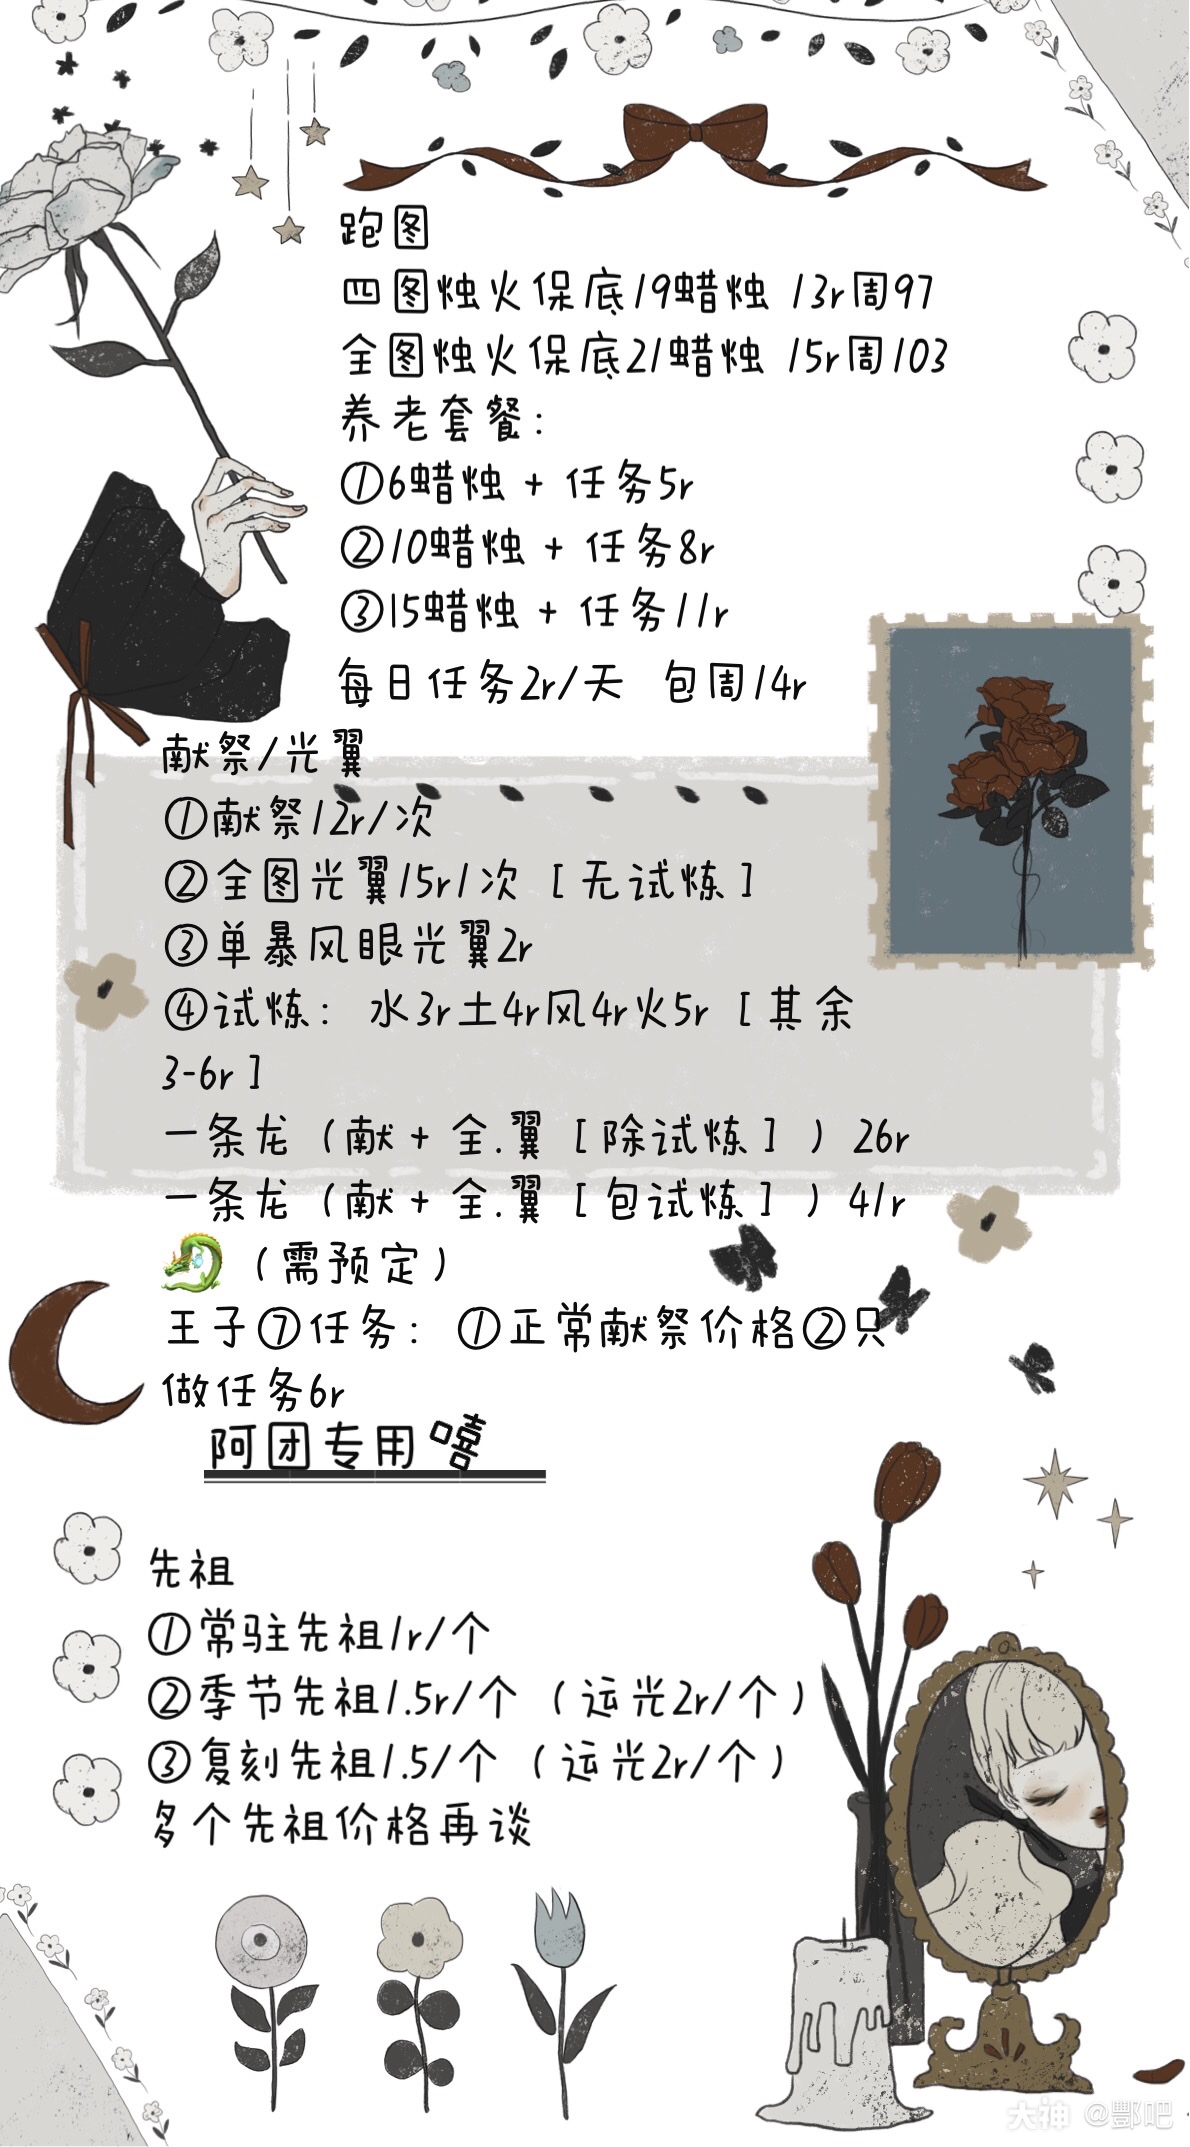 跑图
四图烛火保底19蜡烛 13r周97
全图烛火保底21蜡烛 15r周103
养老套餐：
①6蜡烛 + 任务5r
②10蜡烛 + 任务8r
③15蜡烛 + 任务11r
每日任务2r/天 包周14r
献祭/光翼
①献祭12r/次
②全图光翼15r1次［无试炼］
③单暴风眼光翼2r
④试炼：水3r土4r风4r火5r［其余
3-6r］
一条龙（献 + 全.翼［除试炼］）26r
一条龙（献 + 全.翼［包试炼］）41r
🐉（需预定）
王子⑦任务：①正常献祭价格②只
做任务6r
阿团专用嘻
先祖
①常驻先祖1r/个
②季节先祖1.5r/个（运光2r/个）
③复刻先祖1.5/个（运光2r/个）
多个先祖价格再谈
大神 @酆吧